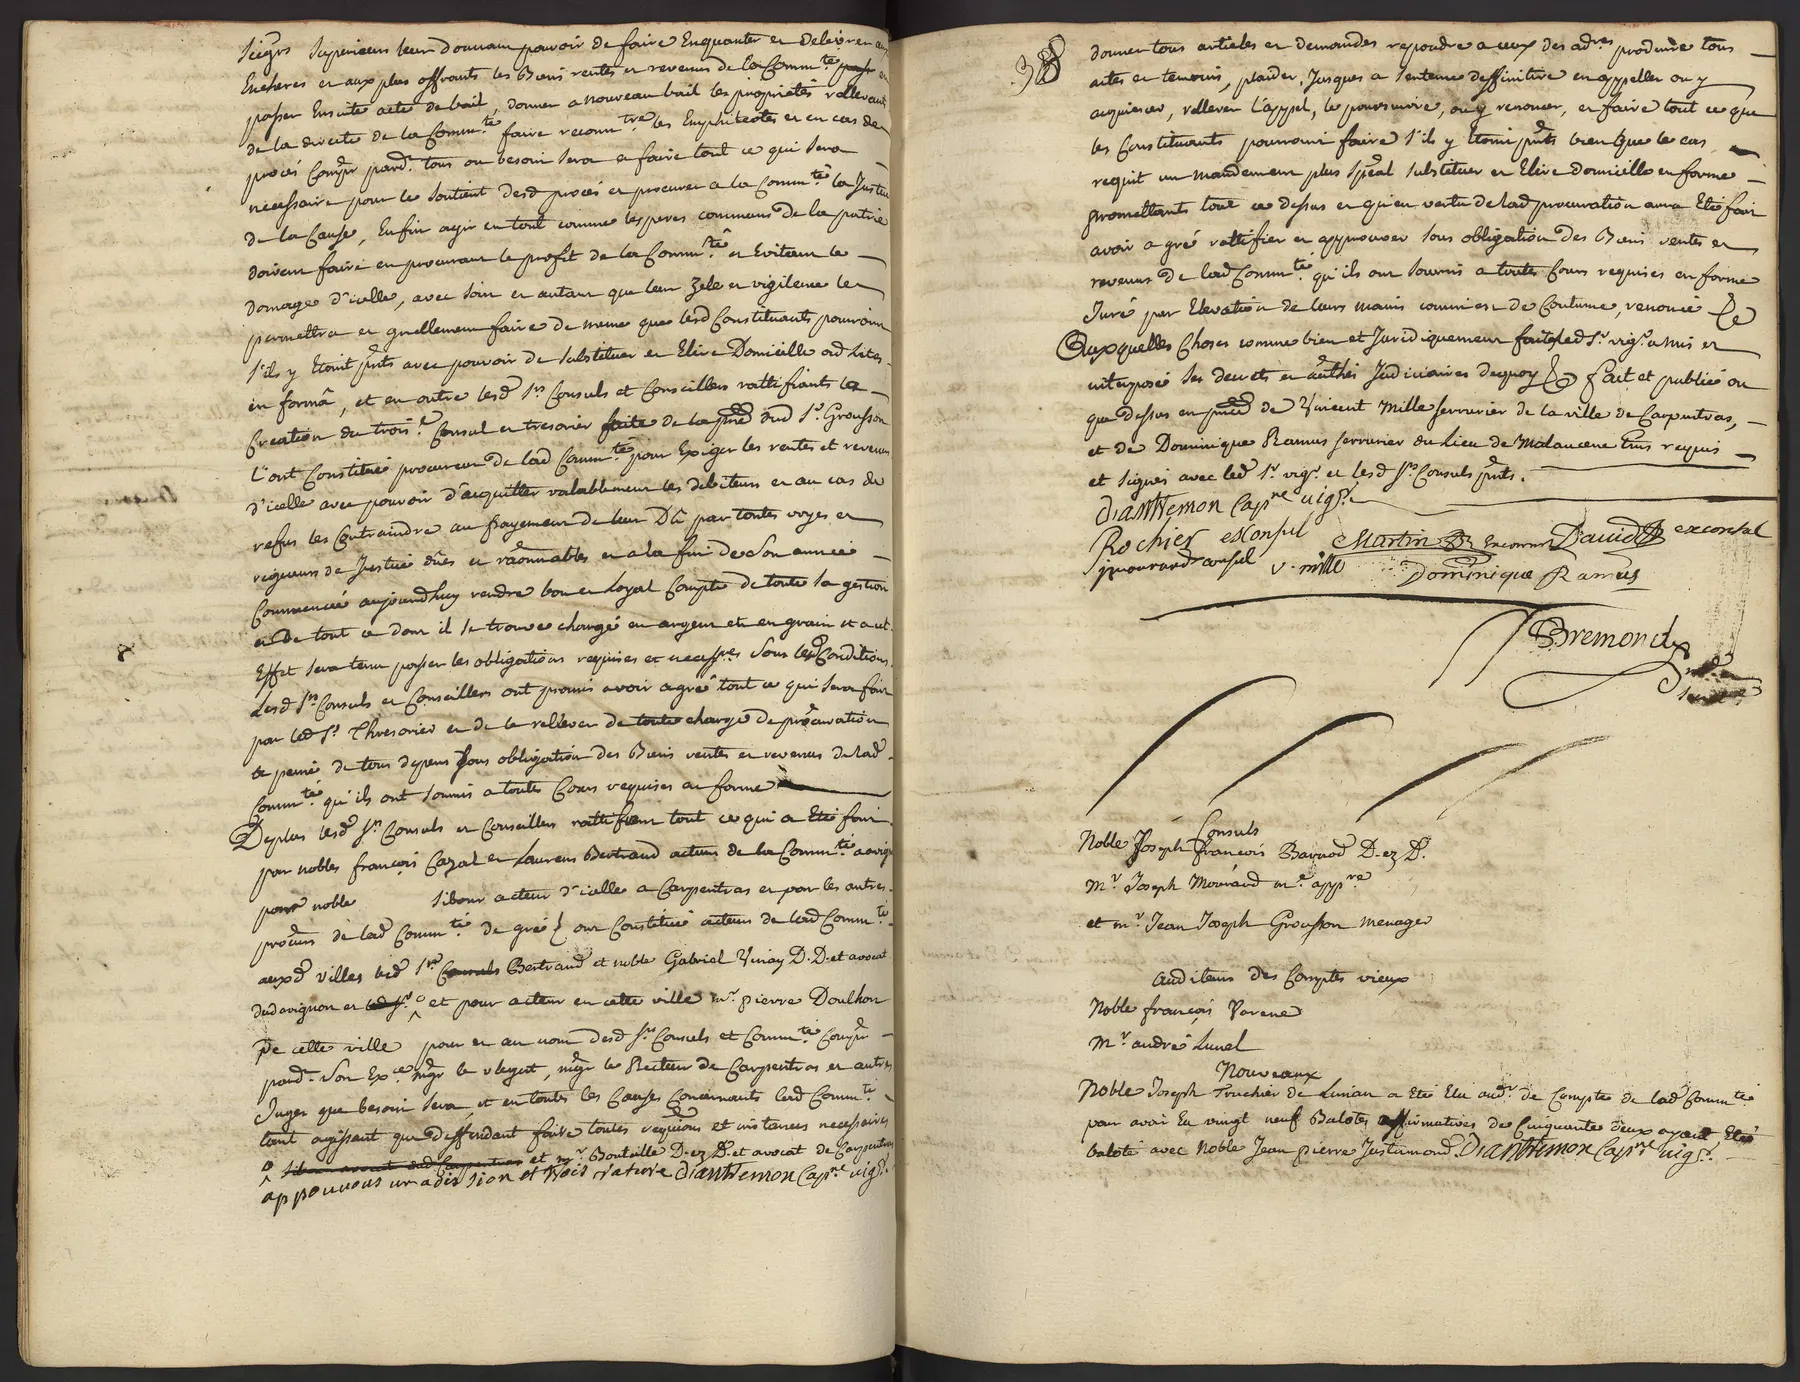 Seigrs Superieurs leur donnant pouvoir de faire Enquanter et Delivrer aux
Encheres et aux plus offrants les Biens rentes et revenus de la Commte et
passer Ensuite acte de bail, donner a nouveau bail les proprietés rellevant
de la directe de la Commte faire reconntre les Emphiteotes et en cas de
procés Compr pard. tous ou besoin sera a faire tout ce qui sera
necessaire pour le soutient desd procés et procurer a la Commte la Justice
de la Cause, Enfin agir en tout comme les peres communs de la patrie
doivent faire en procurant le profit de la Commte et Evitant le
domage d'icelle, avec soin et autant que leur Zele et vigilence le
permettra et gnellement faire de meme que lesd Constituants pourroint
s'ils y Etoint pnts avec pouvoir de substituer et Elire Domicille ad Lites
in formâ, et en outre lesd Srs Consuls et Conseillers rattifiants la
Creation du troise Consul et tresorier faite de la pnne dud Sr Grousson
l'ont Constitué procureur de lad Commte pour Exiger les rentes et revenus
d'icelle avec pouvoir d'acquitter valablement les debiteurs et au cas de
refus les Contraindre au payement de leur Dû par toutes voyes et
rigueurs de Justice dües et raonnables et a la fin de son année
Commencée aujourdhuy rendre bon et Loyal Compte de toute sa gestion
et De tout ce dont il se trouve chargé en argent et en grain et a cet
Effet sera tenu passer les obligations requises et necessres sous lesd Conditions
Lesd Srs Consuls et Conseillers ont promis avoir agreé tout ce qui sera fait
par led Sr Thresorier et de le relever de toute charge de procuration
te peine de tous depens sous obligation des Biens rentes et revenus de lad
Commte qu'ils ont soumis a toutes Cours requises en forme
Deplus lesd Srs Consuls et Conseillers rattifient tout ce qui a Eté fait
par nobles françois Cazal et Laurens Bertrand acteurs de la Commte a avign
pour noble Sibour acteur d'icelle a Carpentras et par les autres
procurs de lad Commte de gré & ont Constitué acteurs de lad Commte
auxd Villes lesd Srs Bertrand et noble Gabriel Vinay D.D. et avocat
dud avignon et et pour acteur en cette ville mr pierre Doulhon
De cette ville pour et au nom desd Srs Consuls et Commte Compr
pard. Son Exce mgr le vlegat, mgr le Recteur de Carpentras et autres
Juges que besoin sera, et en toutes les Causes Concernants lad Commte
tant agissant que deffendant faire toutes requions et instances necessaires
et mr Bouteille D. ez D. et avocat de Carpentras
approuvons un adission et trois rature dianthemon Capne vigr.
38
donner tous articles et demandes repondre a ceux des adres produire tous
actes et temoins, plaider Jusques a sentence deffinitive en appeller ou y
acquiescer, rellever l'appel, le poursuivre, ou y renoncer, et faire tout ce que
les Constituants pourroint faire s'ils y Etoint pnts bien que le cas
requit un mandement plus speal substituer et Elire domicille en forme
promettants tout ce dessus et qu'en vertu de lad procuration aura Eté fait
avoir a gré rattifier et approuver sous obligation des Biens rentes et
revenus de lad Commte qu'ils ont soumis a toutes Cours requises en forme
Juré par Elevation de leurs mains comme est de Coutume, renoncé &e
Auxquelles Choses comme bien et Juridiquement faites led Sr vigr a mis et
interposé Ses decrets et authés Judiciaires dequoy &e fait et publié ou
que dessus en pnce de Vincent Mille serrurier de la ville de Carpentras,
et de Dominique Ramus serrurier du Lieu de Malaucene tms requis
et signés avec led Sr vigr et lesd Srs Consuls pnts.
dianthemon Capne vigr.
Rochier exConsul Martin Exconsul David exconsul
jmourard consul v. mille Dominique Ramus
Bremond
Consuls
Noble Joseph françois Barnod D. ez D.
Mr Joseph Mourard me appre
et mr Jean Joseph Grousson menager
auditeurs des Comptes vieux
Noble françois Varene
Mr andré Lunel
Nouveaux
Noble Joseph Truchier de Limian a Eté Elu audr de Compte de lad Commte
pour avoir Eu vingt neuf Balotes affirmatives de Cinquante deux ayant Eté
baloté avec Noble Jean pierre Justamond. Dianthemon Capne vigr.